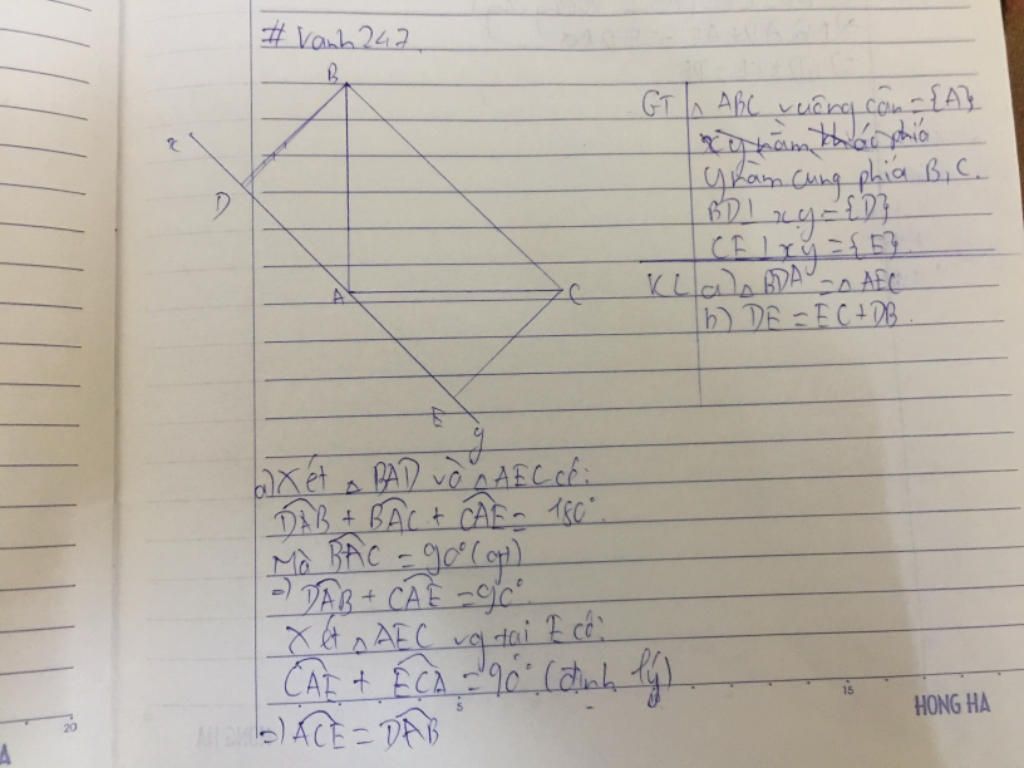 # Vanh247.
B
x
D
A
C
E
y
GT △ ABC vuông cân = {A}
xy nằm khác phía
y nằm cùng phía B, C.
BD⊥ xy = {D}
CE ⊥ xy = {E}
KL a) △ BDA = △ AEC
b) DE = EC + DB.
a) Xét △ BAD và △ AEC có:
DAB + BAC + CAE = 180°.
Mà BAC = 90° (gt)
=) DAB + CAE = 90°.
Xét △ AEC vg tại E có:
CAE + ECA = 90° (định lý)
=) ACE = DAB
5
15
HONG HA
20
A